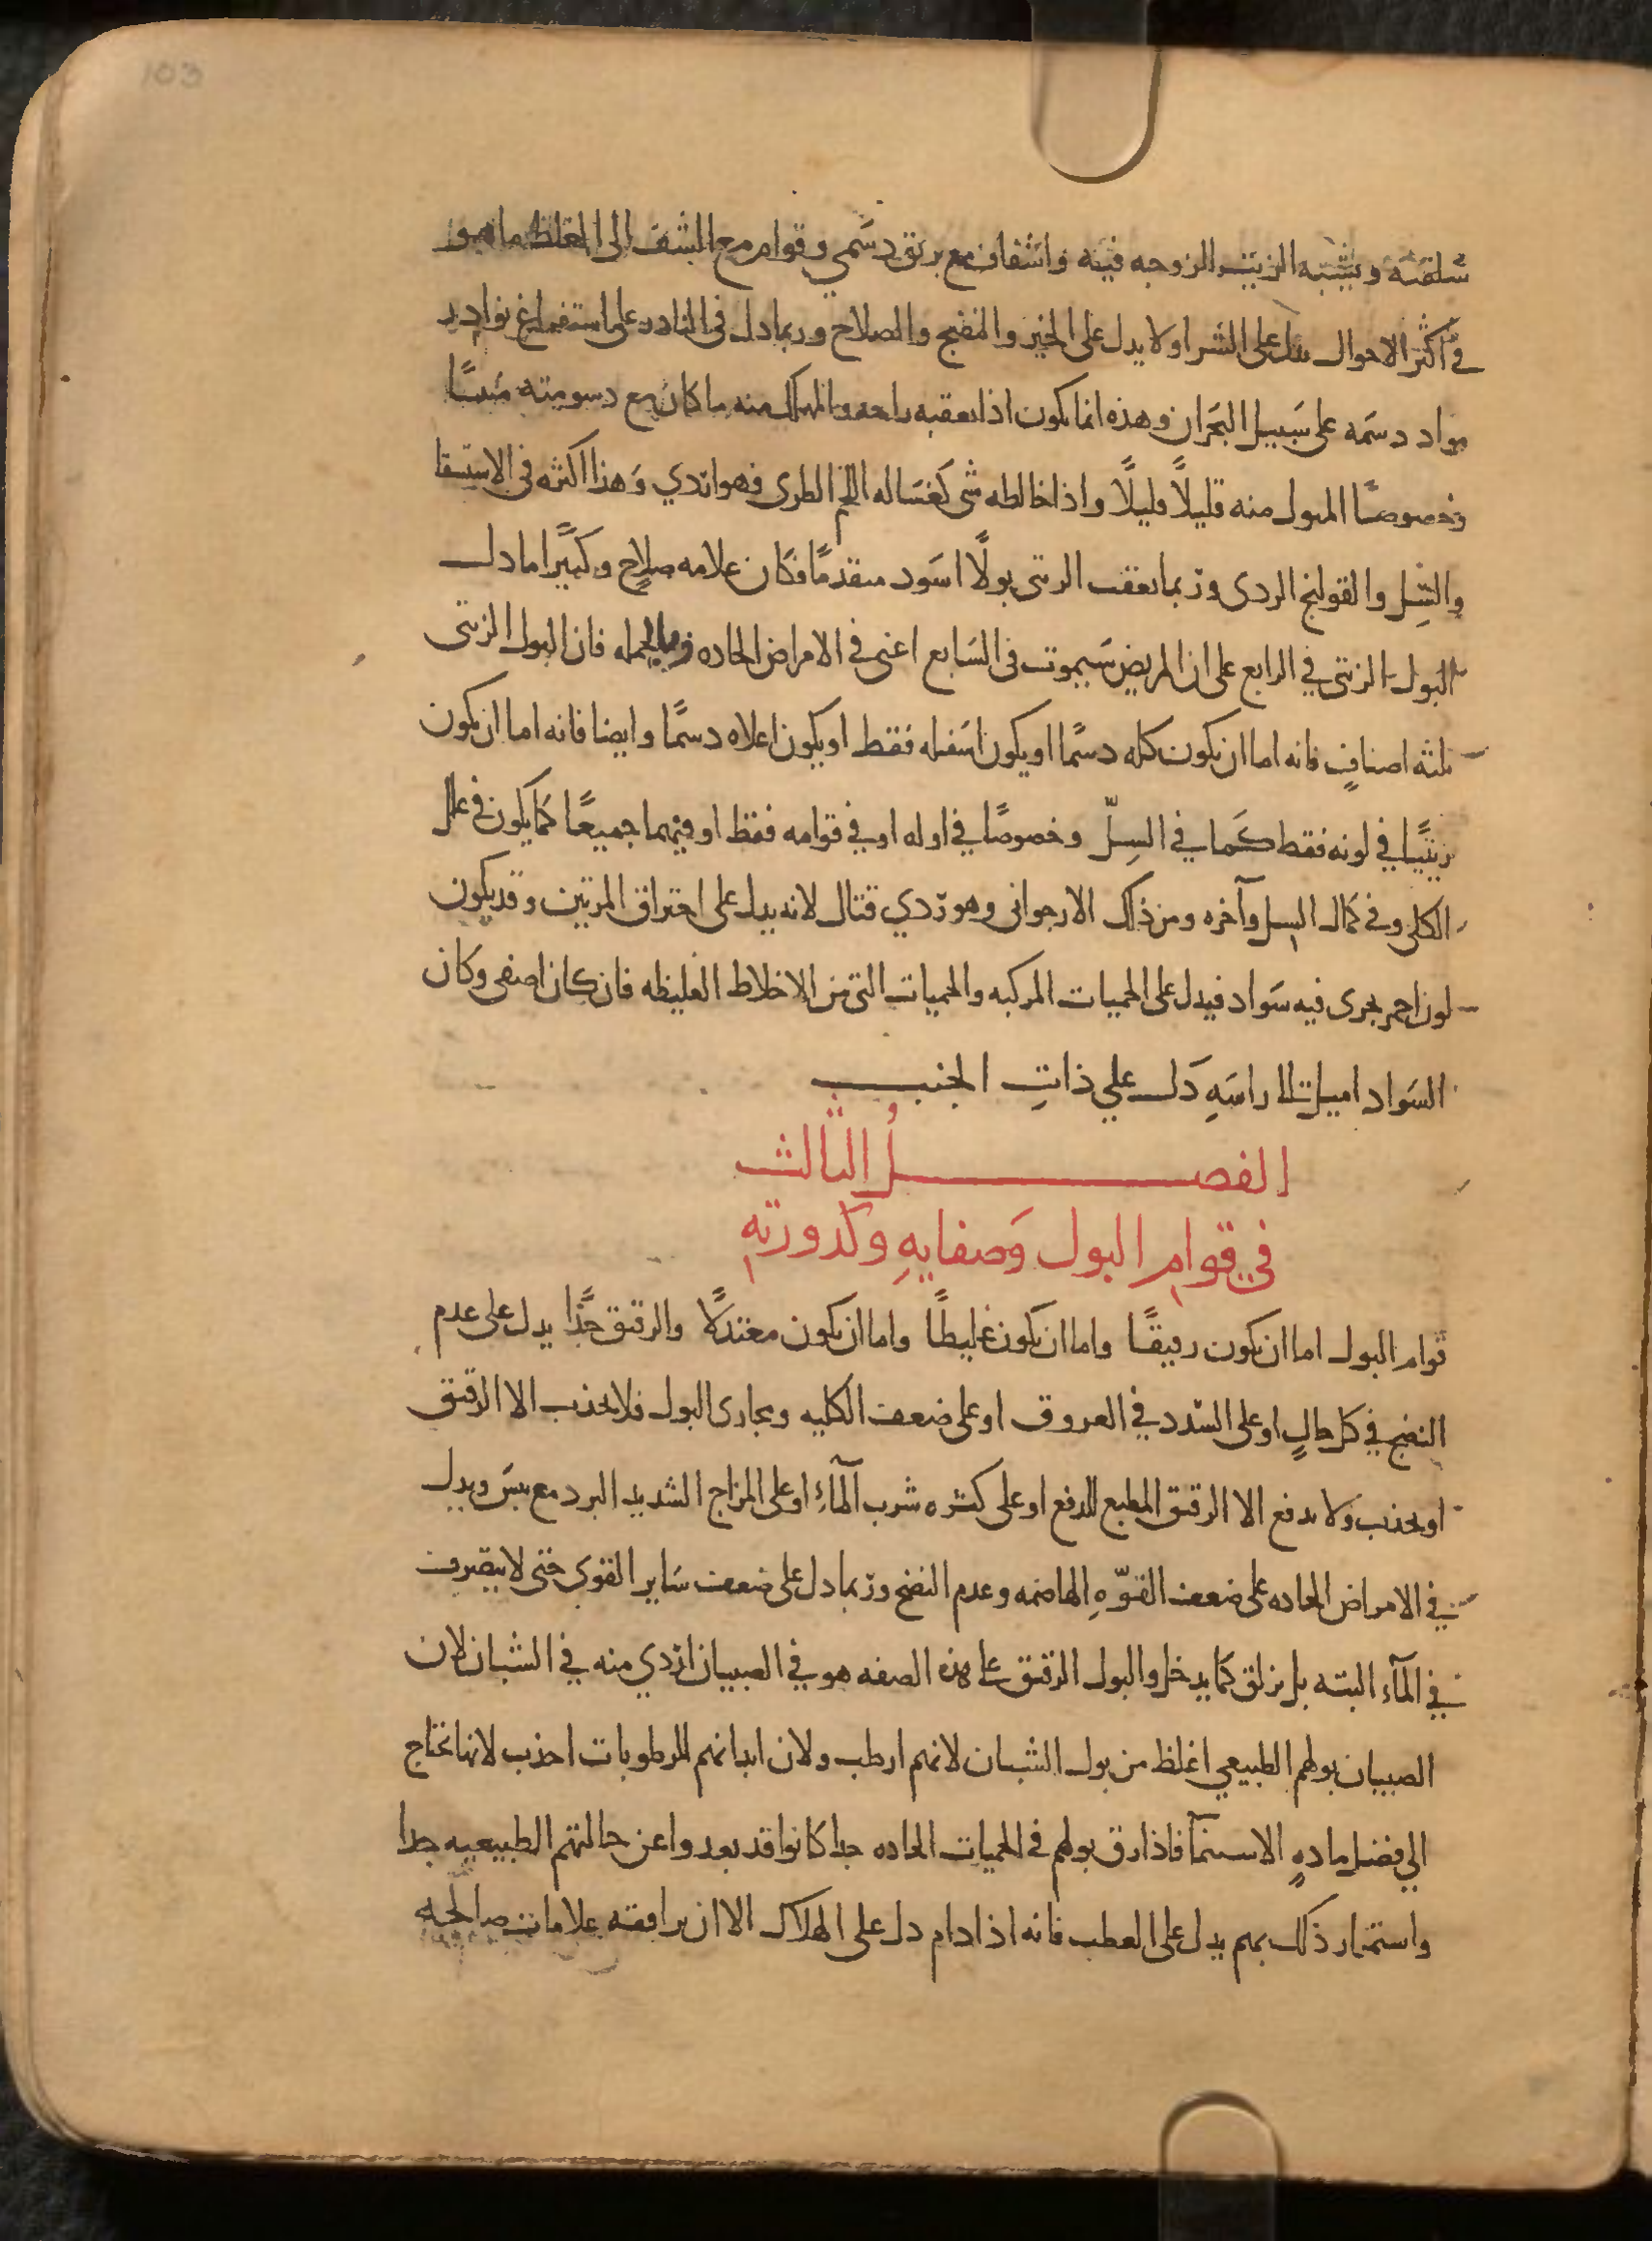 103
سلقيه ويشبه الزيت لزوجه فيه واشفاف مع بريق دسمي وقوام مع الشف الى الغلظ ما هو
في اكثر الاحوال يدل على الشر او لا يدل على الخير والنضج والصلاح وربما دل في النادر على استفراغ نوادر
مواد دسمه على سَبيل البَحران وهذه انما يكون اذا تعقبه راحه والمهلك منه ما كان مع دسومته منتنًا
وخصوصًا المبول منه قليلًا قليلًا واذا خالطه شى كغسَاله اللحم الطرى فهو اردي وَهذا اكثره فى الاستسقا
والسِل والقولنج الردى وربما يعقب الزيتى بولًا اسَود متقدمًا فكان علامه صلاحٍ وكثيرًا ما دل
البول الزيتى في الرابع على ان المريض سَيموت فى السَابع اعنى في الامراض الحاده وبالجمله فان البول الزيتى
ثلثه اصنافٍ فانه اما ان يكون كله دسمًا او يكون اسَفله فقط او يكون اعلاه دسمًا وايضا فانه اما ان يكون
زيتيًا في لونه فقط كَما في السِلّ وخصوصًا في اوله او في قوامه فقط او فيهما جميعًا كما يكون في علل
الكلى وفى كمال السل وآخره ومن ذلك الارجوانى وهو ردي قتال لانه يدل على احتراق المرتين وقد يكون
لون احمر يجرى فيه سَواد فيدل على الحميات المركبه والحميات التى من الاخلاط الغليظه فان كان اصفى وكان
السَواد اميل الى راسَهِ دَل علي ذاتِ الجنب
الفصلُ الثالث
في قوامِ البول وَصفايهِ وكدورتهِ
قوام البول اما ان يكون رقيقًا واما ان يكون غليظًا واما ان يكون معتدلًا والرقيق جدًا يدل على عدم
النضج في كل حالٍ او على السّدد في العروق او على ضعف الكليه ومجارى البول فلا يجذب الا الرقيق
او يجذب وَلا يدفع الا الرقيق المطيع للدفع او على كثره شرب المآءِ او على المزاج الشديد البرد مع يبسَ ويدل
في الامراض الحاده على ضعف القوّهِ الهاضمه وعدم النضج وربما دل على ضعف سَاير القوى حتى لا يتصرف
في المآء البته بل يزلق كما يدخل والبول الرقيق على هذه الصفه هو في الصبيان اردي منه في الشبان لان
الصبيان بولهم الطبيعي اغلظ من بول الشبان لانهم ارطب ولان ابدانهم للرطوبات احذب لانها تحتاج
الي فضل مادهٍ الاستنمآ فاذا رق بولهم فى الحميات الحاده جدا كانوا قد بعدوا عن حالتهم الطبيعيه جدا
واستمرار ذلك بهم يدل على العطب فانه اذا دام دل على الهلاك الا ان يرافقه علامات صالحه